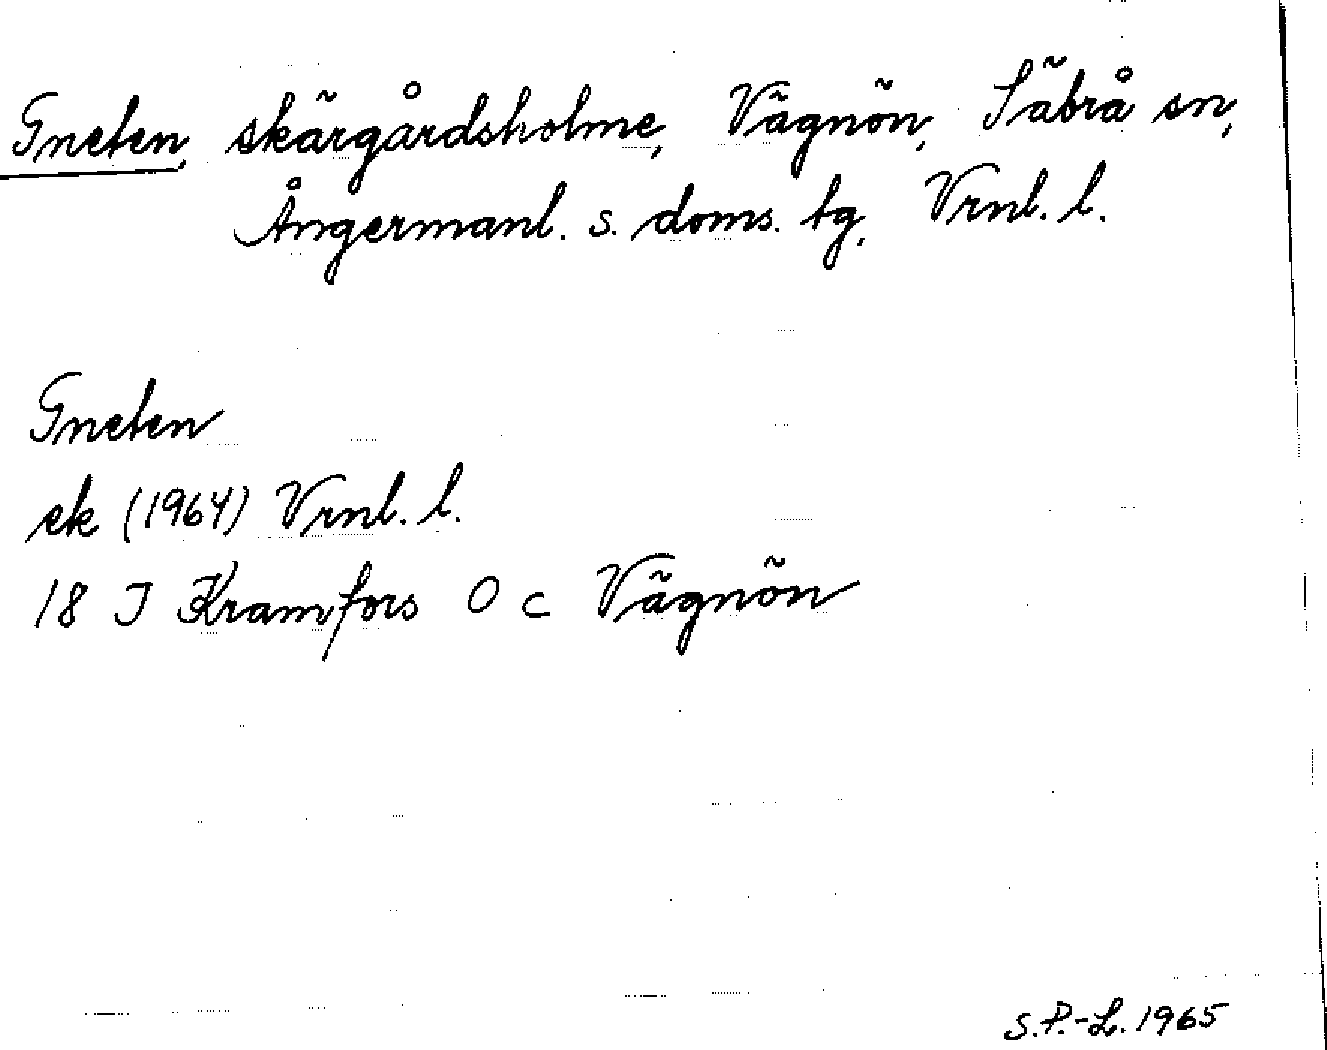 Gneten, skärgårdsholme, Vägnön, Säbrå sn,
Ångermanl. s. doms. tg, Vrnl. l.
Gneten
ek (1964) Vrnl. l.
18 I Kramfors O c Vägnön
S.P.-L. 1965